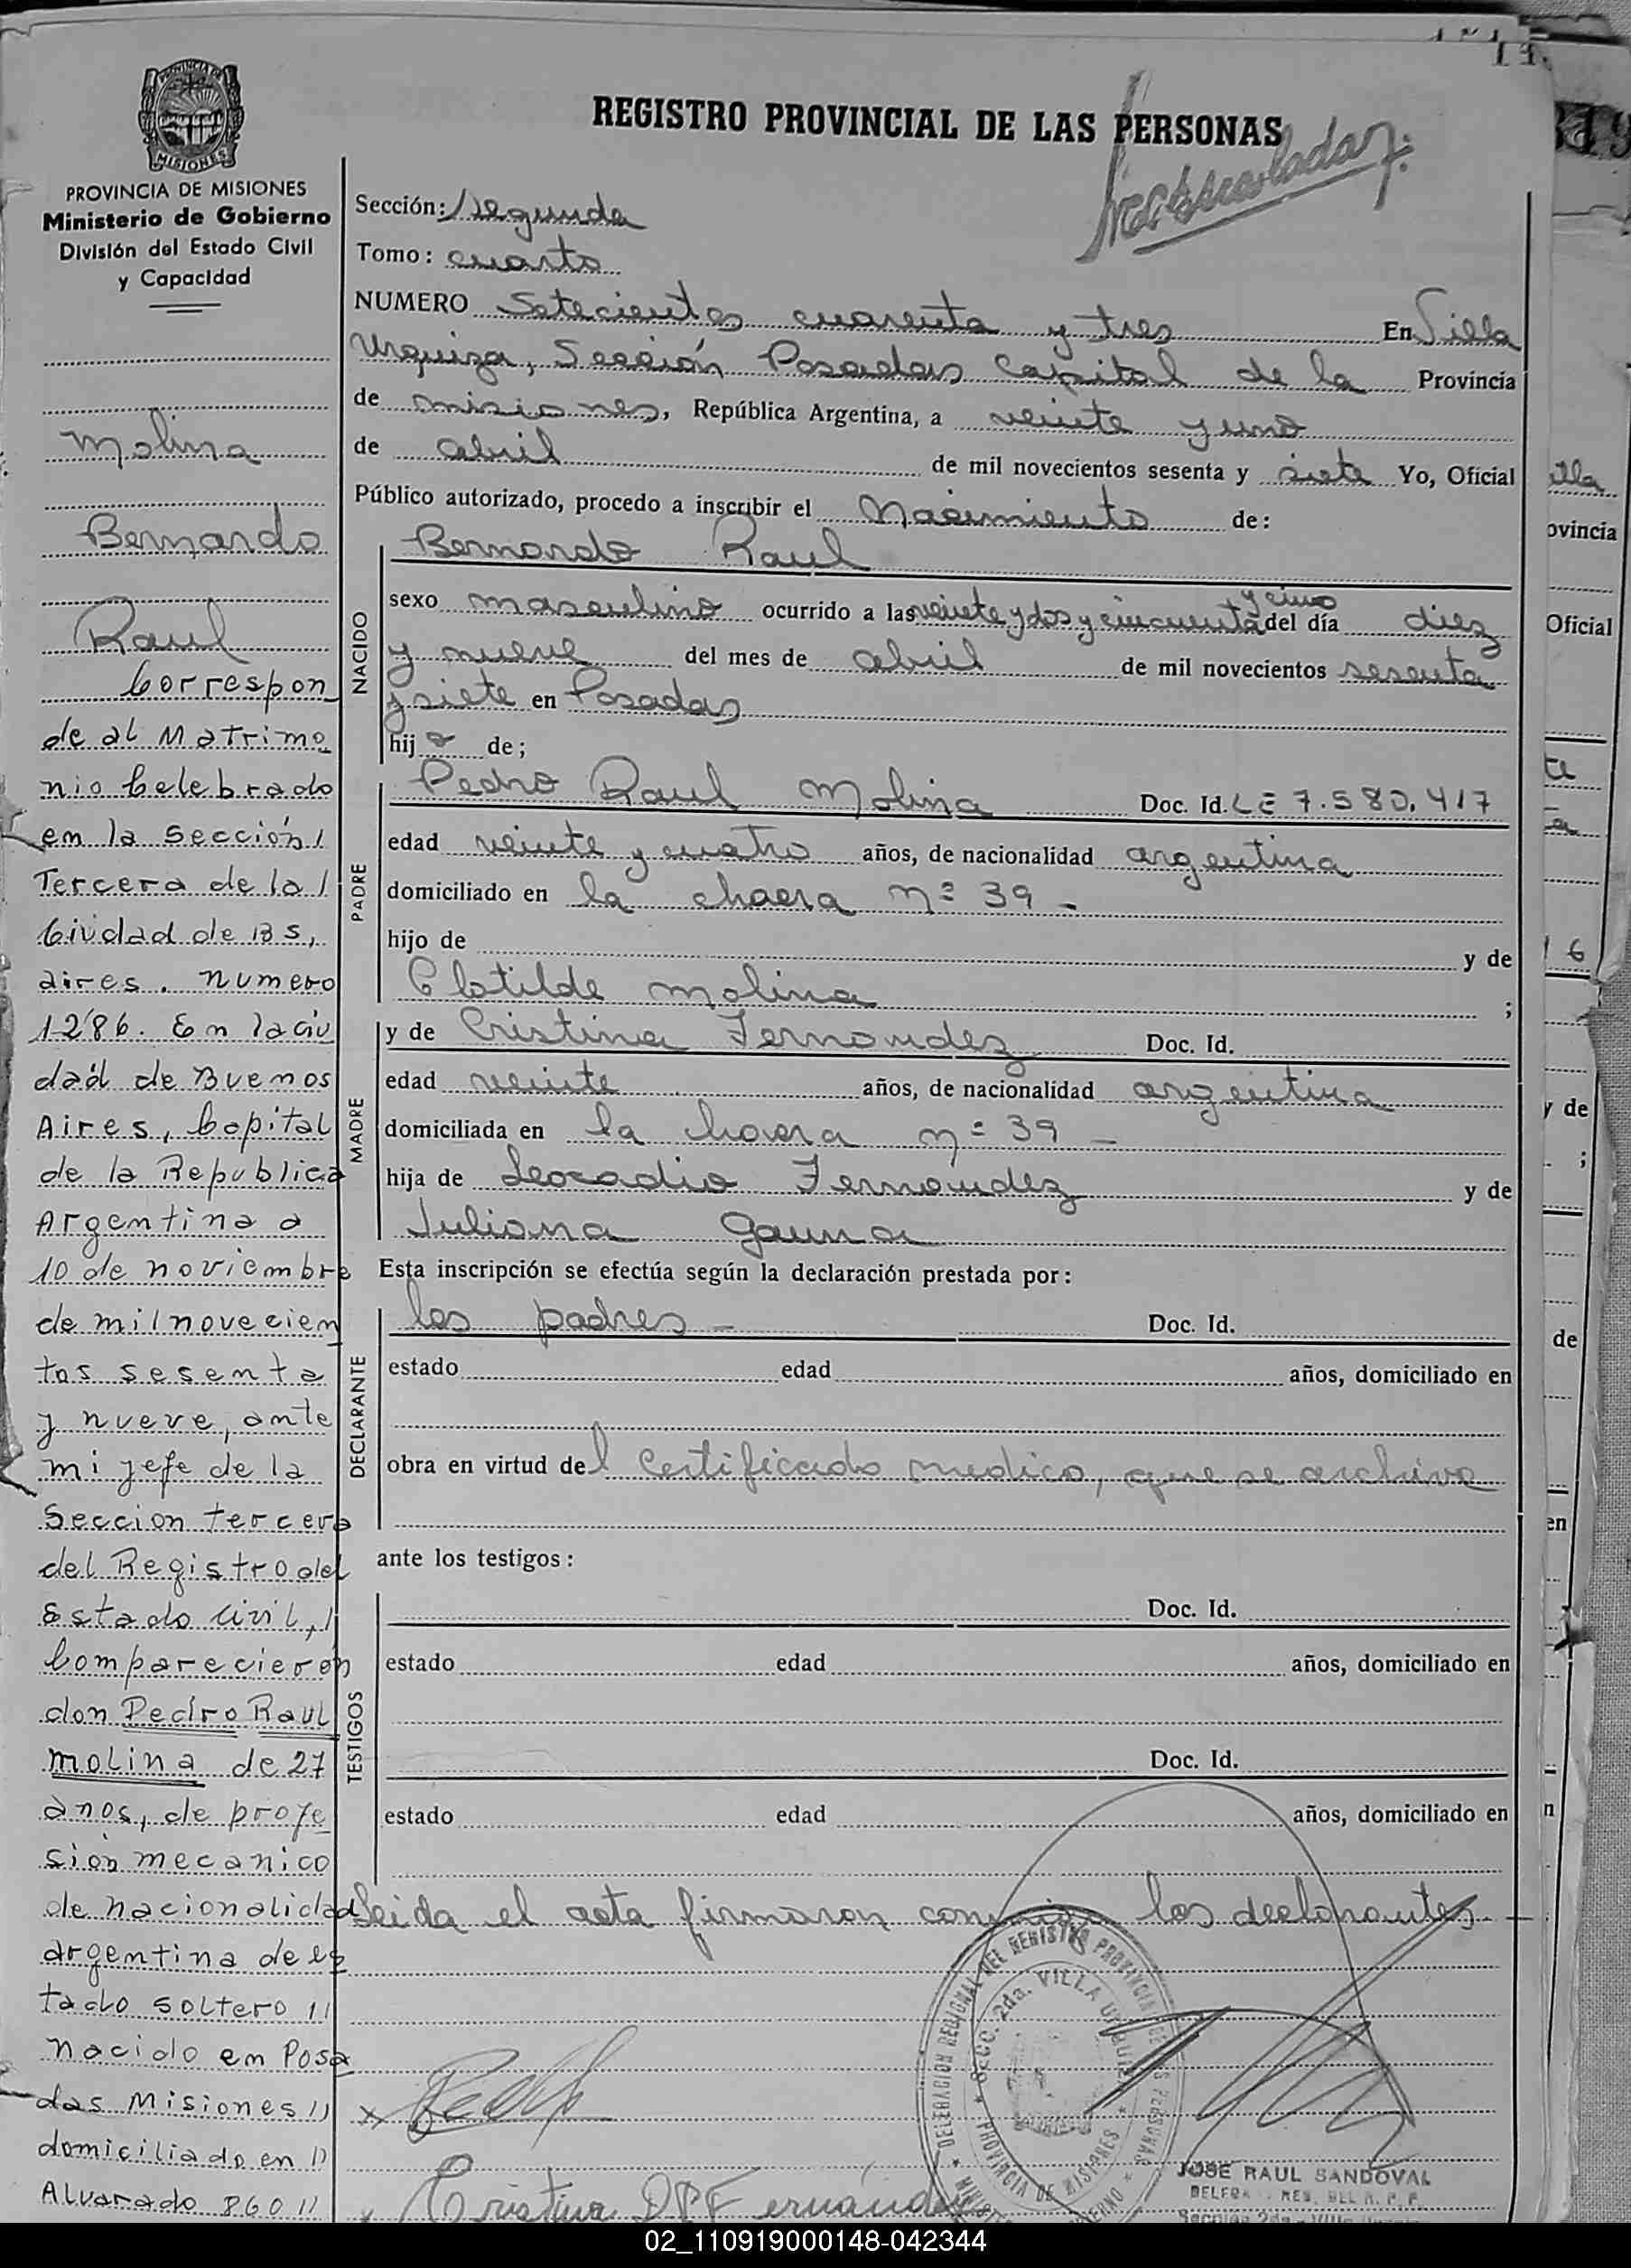 PROVINCIA DE MISIONES
MISIONES
PROVINCIA DE MISIONES
Ministerio de Gobierno
División del Estado Civil
y Capacidad
Molina
Bernardo
Raul
Correspon
de al Matrimo
nio Celebrado
en la Sección /
Tercera de la /
Ciudad de Bs,
aires. numero
1286. En la ciu
dad de Buenos
Aires, Capital
de la Republica
Argentina a
10 de noviembre
de mil novecien
tos sesenta
y nueve, ante
mi jefe de la
Seccion tercera
del Registro del
Estado Civil, /
Comparecieron
don Pedro Raul
Molina de 27
años, de profe
sion mecanico
de nacionalidad
argentina de es
tado soltero //
nacido en Posa
das Misiones //
domiciliado en //
Alvarado 860 //
REGISTRO PROVINCIAL DE LAS PERSONAS
Sección: Segunda
Tomo: cuarto
NUMERO Setecientos cuarenta y tres En Villa
Urquiza, Sección Posadas Capital de la Provincia
de misiones, República Argentina, a veinte y uno
de abril de mil novecientos sesenta y siete Yo, Oficial
Público autorizado, procedo a inscribir el Nacimiento de:
NACIDO
Bernardo Raul
y cinco
sexo masculino ocurrido a las veinte y dos y cincuenta del día diez
y nueve del mes de abril de mil novecientos sesenta
y siete en Posadas
hijo de;
PADRE
Pedro Raul Molina Doc. Id. LE 7.580.417
edad veinte y cuatro años, de nacionalidad argentina
domiciliado en la chacra nº 39 -
hijo de y de
Clotilde molina ;
MADRE
y de Cristina Fernandez Doc. Id.
edad veinte años, de nacionalidad argentina
domiciliada en la chacra nº 39 -
hija de Leocadio Fernández y de
Juliana Gauna
Esta inscripción se efectúa según la declaración prestada por:
DECLARANTE
los padres - Doc. Id.
estado edad años, domiciliado en
obra en virtud del Certificado medico, que se archiva
ante los testigos:
TESTIGOS
Doc. Id.
estado edad años, domiciliado en
Doc. Id.
estado edad años, domiciliado en
Leida el acta firmaron conmigo los declarantes -
DELEGACION REGIONAL DEL REGISTRO PROVINCIAL DE LAS PERSONAS
SECC. 2da. VILLA URQUIZA
PROVINCIA DE MISIONES
x
Cristina Fernández
JOSE RAUL SANDOVAL
illa
ovincia
Oficial
16
y de
;
de
en
n
02_110919000148-042344